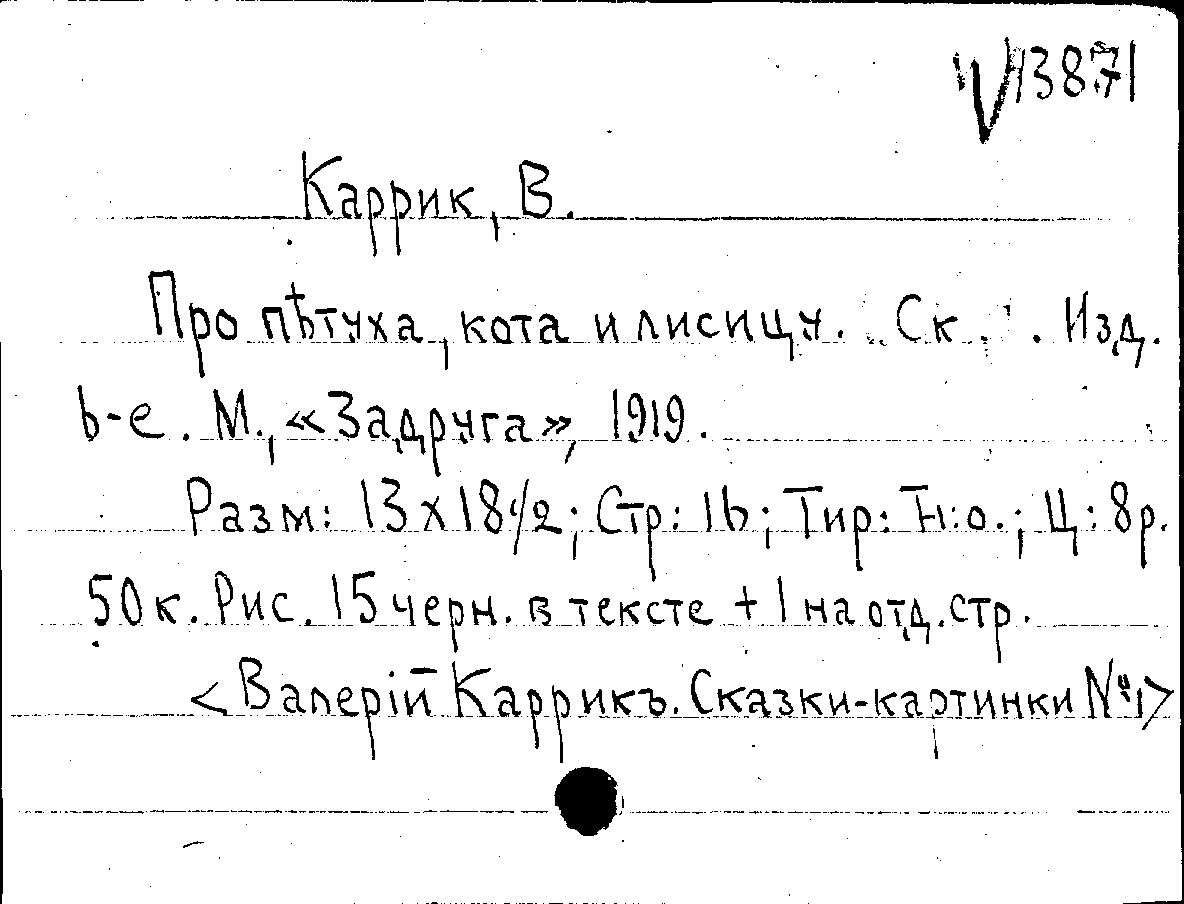 V13871
Каррик, В.
Про пѣтуха, кота и лисицу. Ск. . Изд.
6-е. М., «Задруга», 1919.
Разм: 13 x 18 1/2; Стр: 16; Тир: Н:о.; Ц: 8 р.
50 к. Рис. 15 черн. в тексте + 1 на отд. стр.
<Валерій Каррикъ. Сказки-картинки № 1>